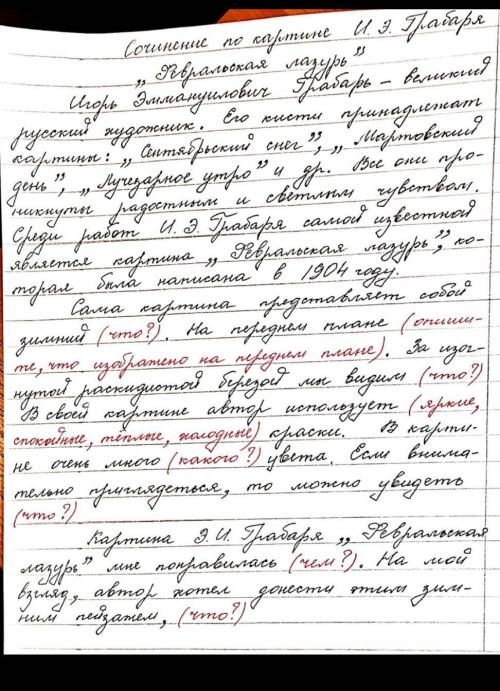 Сочинение по картине И. Э. Грабаря
„Февральская лазурь”
Игорь Эммануилович Грабарь – великий
русский художник. Его кисти принадлежат
картины: „Сентябрьский снег”, „Мартовский
день”, „Лучезарное утро” и др. Все они про-
никнуты радостным и светлым чувством.
Среди работ И. Э. Грабаря самой известной
является картина „Февральская лазурь”, ко-
торая была написана в 1904 году.
Сама картина представляет собой
зимний (что?). На переднем плане (опиши-
те, что изображено на переднем плане). За изог-
нутой раскидистой березой мы видим (что?)
В своей картине автор использует (яркие,
спокойные, тёплые, холодные) краски. В карти-
не очень много (какого?) цвета. Если внима-
тельно приглядеться, то можно увидеть
(что?)
Картина Э. И. Грабаря „Февральская
лазурь” мне понравилась (чем?). На мой
взгляд, автор хотел донести этим зим-
ним пейзажем, (что?)